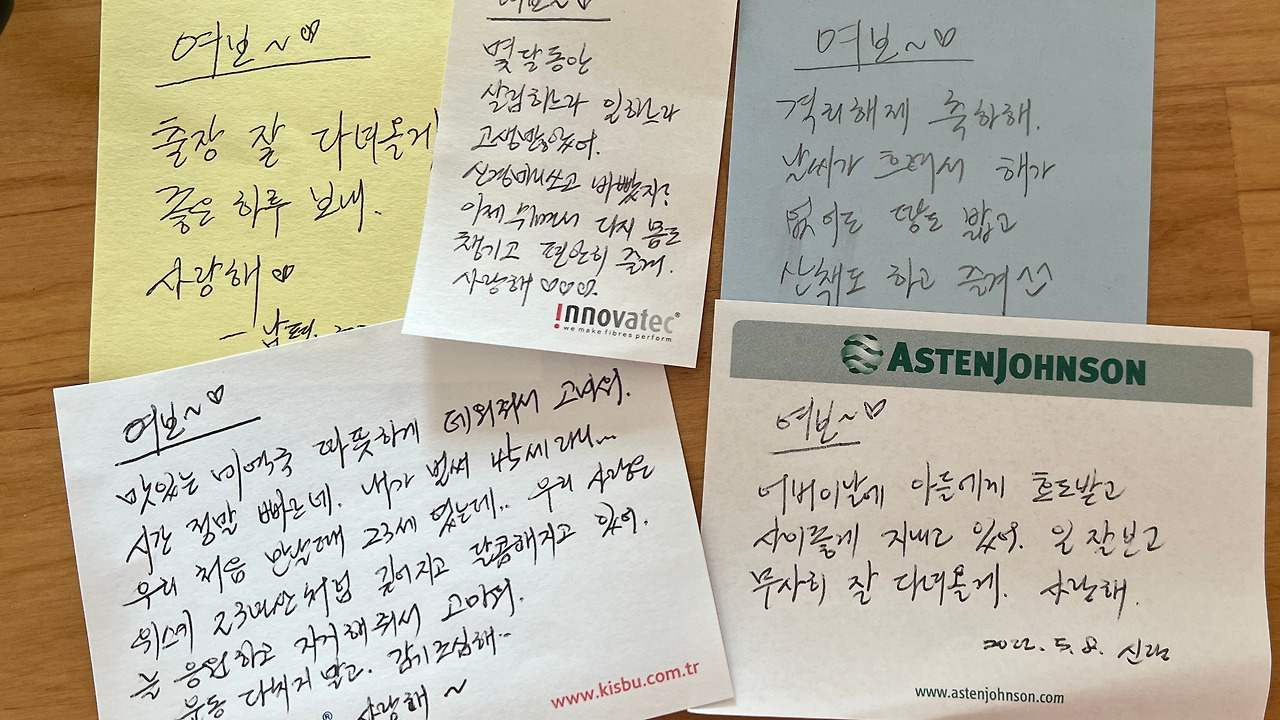 여보~♡
출장 잘 다녀올게
좋은 하루 보내.
사랑해♡
- 남편.
여보~♡
몇달동안
살림하느라 일하느라
고생많았어.
신경마니쓰고 바빴지?
이제 쉬면서 다시 몸도
챙기고 편안히 즐겨.
사랑해 ♡♡♡.
innovatec®
we make fibres perform
여보~♡
격리해제 축하해.
날씨가 흐려서 해가
없어도 땅도 밟고
산책도 하고 즐겨^^
여보~♡
맛있는 미역국 따뜻하게 데워줘서 고마워.
시간 정말 빠르네. 내가 벌써 45세라니...
우리 처음 만날때 23세 였는데.. 우리 사랑은
위스키 23년산처럼 깊어지고 달콤해지고 있어.
늘 응원하고 지지해줘서 고마워.
운동 다치지 말고. 감기조심해..
사랑해 ~
®
www.kisbu.com.tr
ASTENJOHNSON
여보~♡
어버이날에 아들에게 효도받고
사이좋게 지내고 있어. 일 잘보고
무사히 잘 다녀올게. 사랑해.
2022. 5. 8. 신랑
www.astenjohnson.com